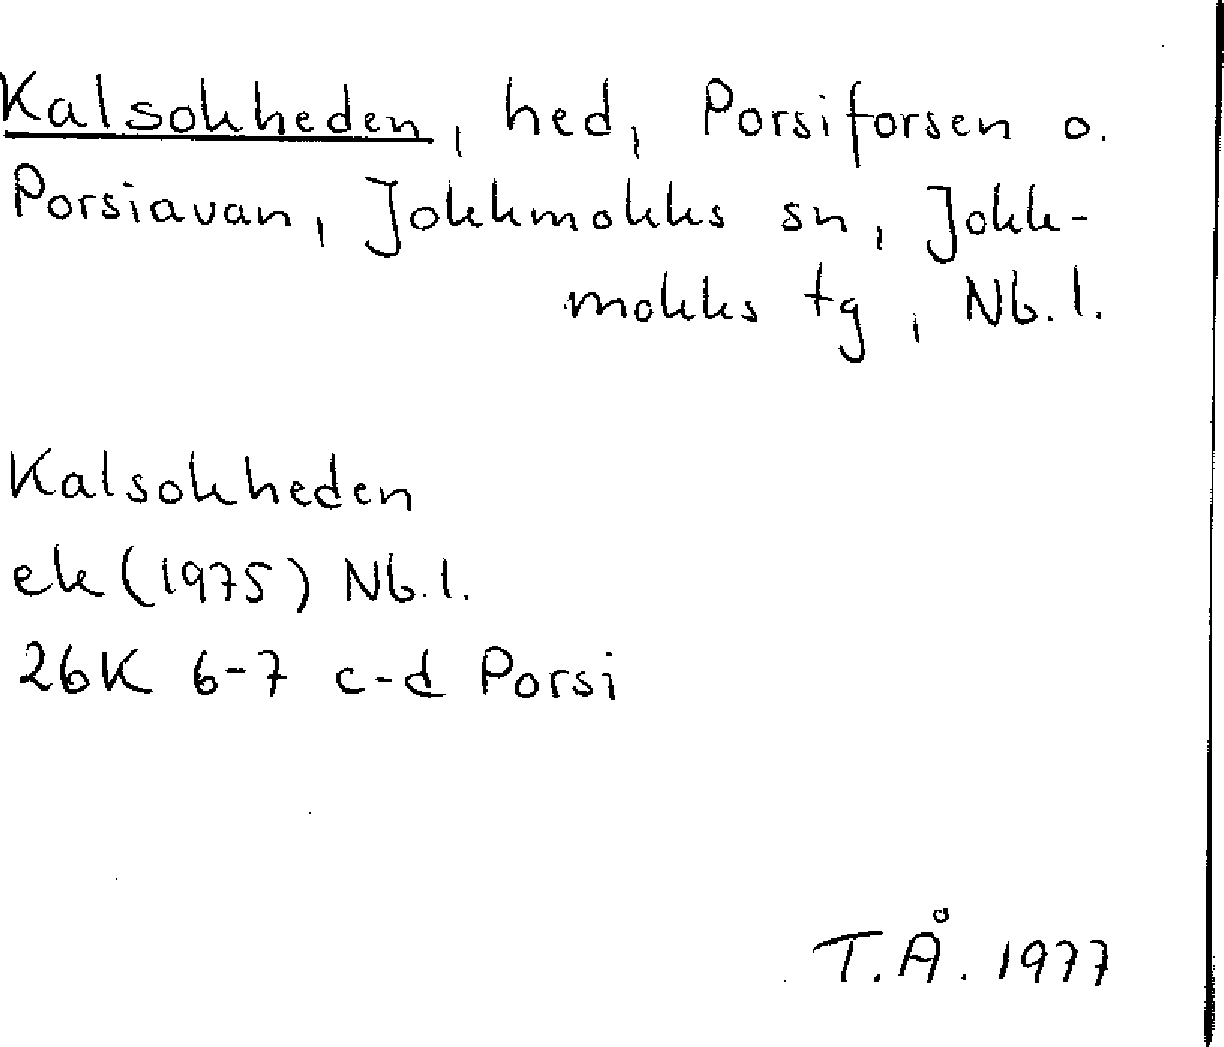 Kalsokheden, hed, Porsiforsen o.
Porsiavan, Jokkmokks sn, Jokk-
mokks tg, Nb. l.
Kalsokheden
ek (1975) Nb. l.
26K 6-7 c-d Porsi
T. Å. 1977